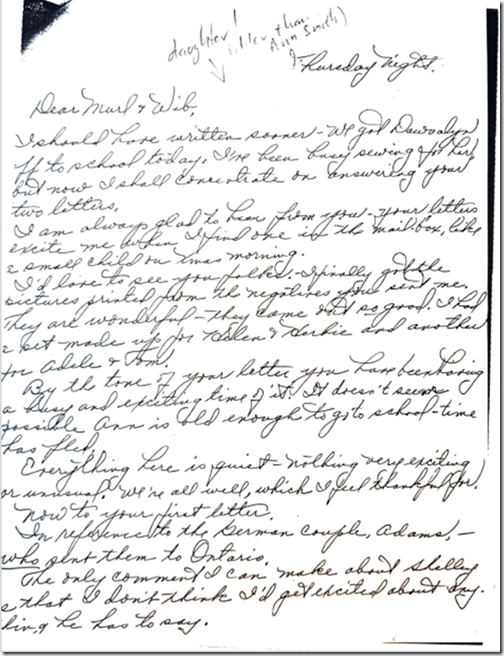 daughter!
(older than
Ann Smith)
Thursday Night.
Dear Murl & Wib,
I should have written sooner - We got
off to school today. I've been busy sewing for her,
but now I shall concentrate on answering your
two letters.
I am always glad to hear from you - your letters
excite me when I find one in the mail box, like
a small child on Xmas morning.
I'd love to see you folks. I finally got the
pictures printed from the negatives you sent me.
They are wonderful - they came out so good. I had
a set made up for Helen & Herbie and another
for Adele & Tom.
By the tone of your letter you have been having
a busy and exciting time of it. It doesn't seem
possible Ann is old enough to go to school - time
has fled.
Everything here is quiet - nothing very exciting
or unusual. We're all well, which I feel thankful for.
Now to your first letter.
In reference to the German couple, Adams, -
who sent them to Ontario.
The only comment I can make about Shelley
s that I don't think I'd get excited about any-
thing he has to say.